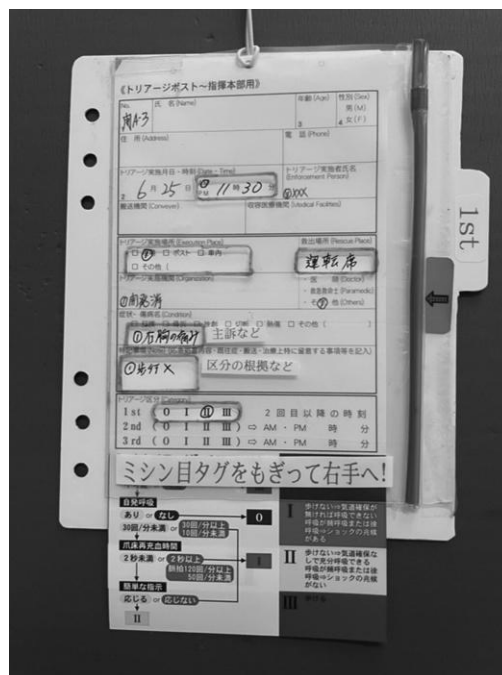 《トリアージポスト～指揮本部用》
No. 氏 名 (Name) 年齢 (Age) 性別 (Sex)
男 (M)
A-3 3 4 女 (F)
住 所 (Address) 電 話 (Phone)
トリアージ実施月日・時刻 (Date・Time) トリアージ実施者氏名
(Enforcement Person)
2 6 月 25 日 PM 11 時 30 分 XXX
搬送機関 (Conveyer) 収容医療機関 (Medical Facilities)
トリアージ実施場所 (Execution Place) 救出場所 (Rescue Place)
□ ポスト □ 車内 運転席
□ その他 (
トリアージ実施機関 (Organization) ・医 師 (Doctor)
・救急救命士 (Paramedic)
・その他 (Others)
症状・傷病名 (Condition)
□ 熱傷 □ その他 ( )
①右胸の痛み 主訴など
①歩行× 区分の根拠など
トリアージ区分 (Category)
1st ( 0 I II III ) 2回目以降の時刻
2nd ( 0 I II III ) ⇨ AM ・ PM 時 分
3rd ( 0 I II III ) ⇨ AM ・ PM 時 分
ミシン目タグをもぎって右手へ!
自発呼吸
あり or なし 0
30回/分未満 30回/分以上
10回/分未満
爪床再充血時間
2秒未満 or 2秒以上 I
脈拍120回/分以上
50回/分未満
簡単な指示
応じる or 応じない
II
I 歩けない⇨気道確保が
無ければ呼吸できない
呼吸が頻呼吸または徐
呼吸⇨ショックの兆候
がある
II 歩けない⇨気道確保な
しで充分呼吸できる
呼吸が頻呼吸または徐
呼吸⇨ショックの兆候
がない
III 歩ける
1st